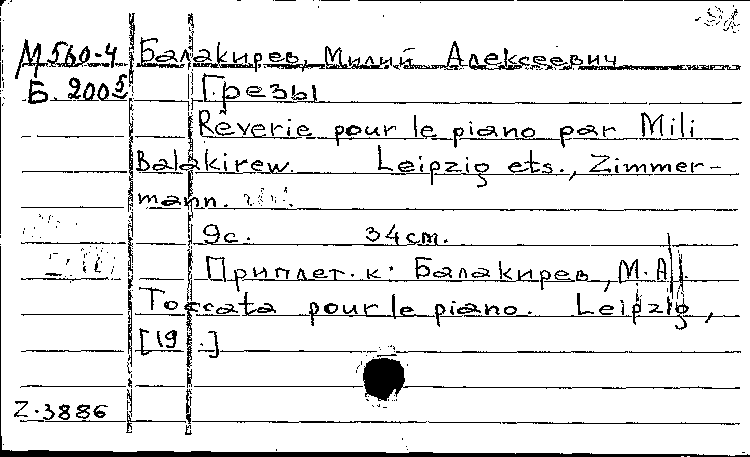 М560-4 Балакирев, Милий Алексеевич
Б. 2005 Грезы
Rêverie pour le piano par Mili
Balakirew. Leipzig ets., Zimmer-
mann.
9с. 34 cm.
Приплет. к: Балакирев, М.А.
Toccata pour le piano. Leipzig,
[19 .]
Z.3886